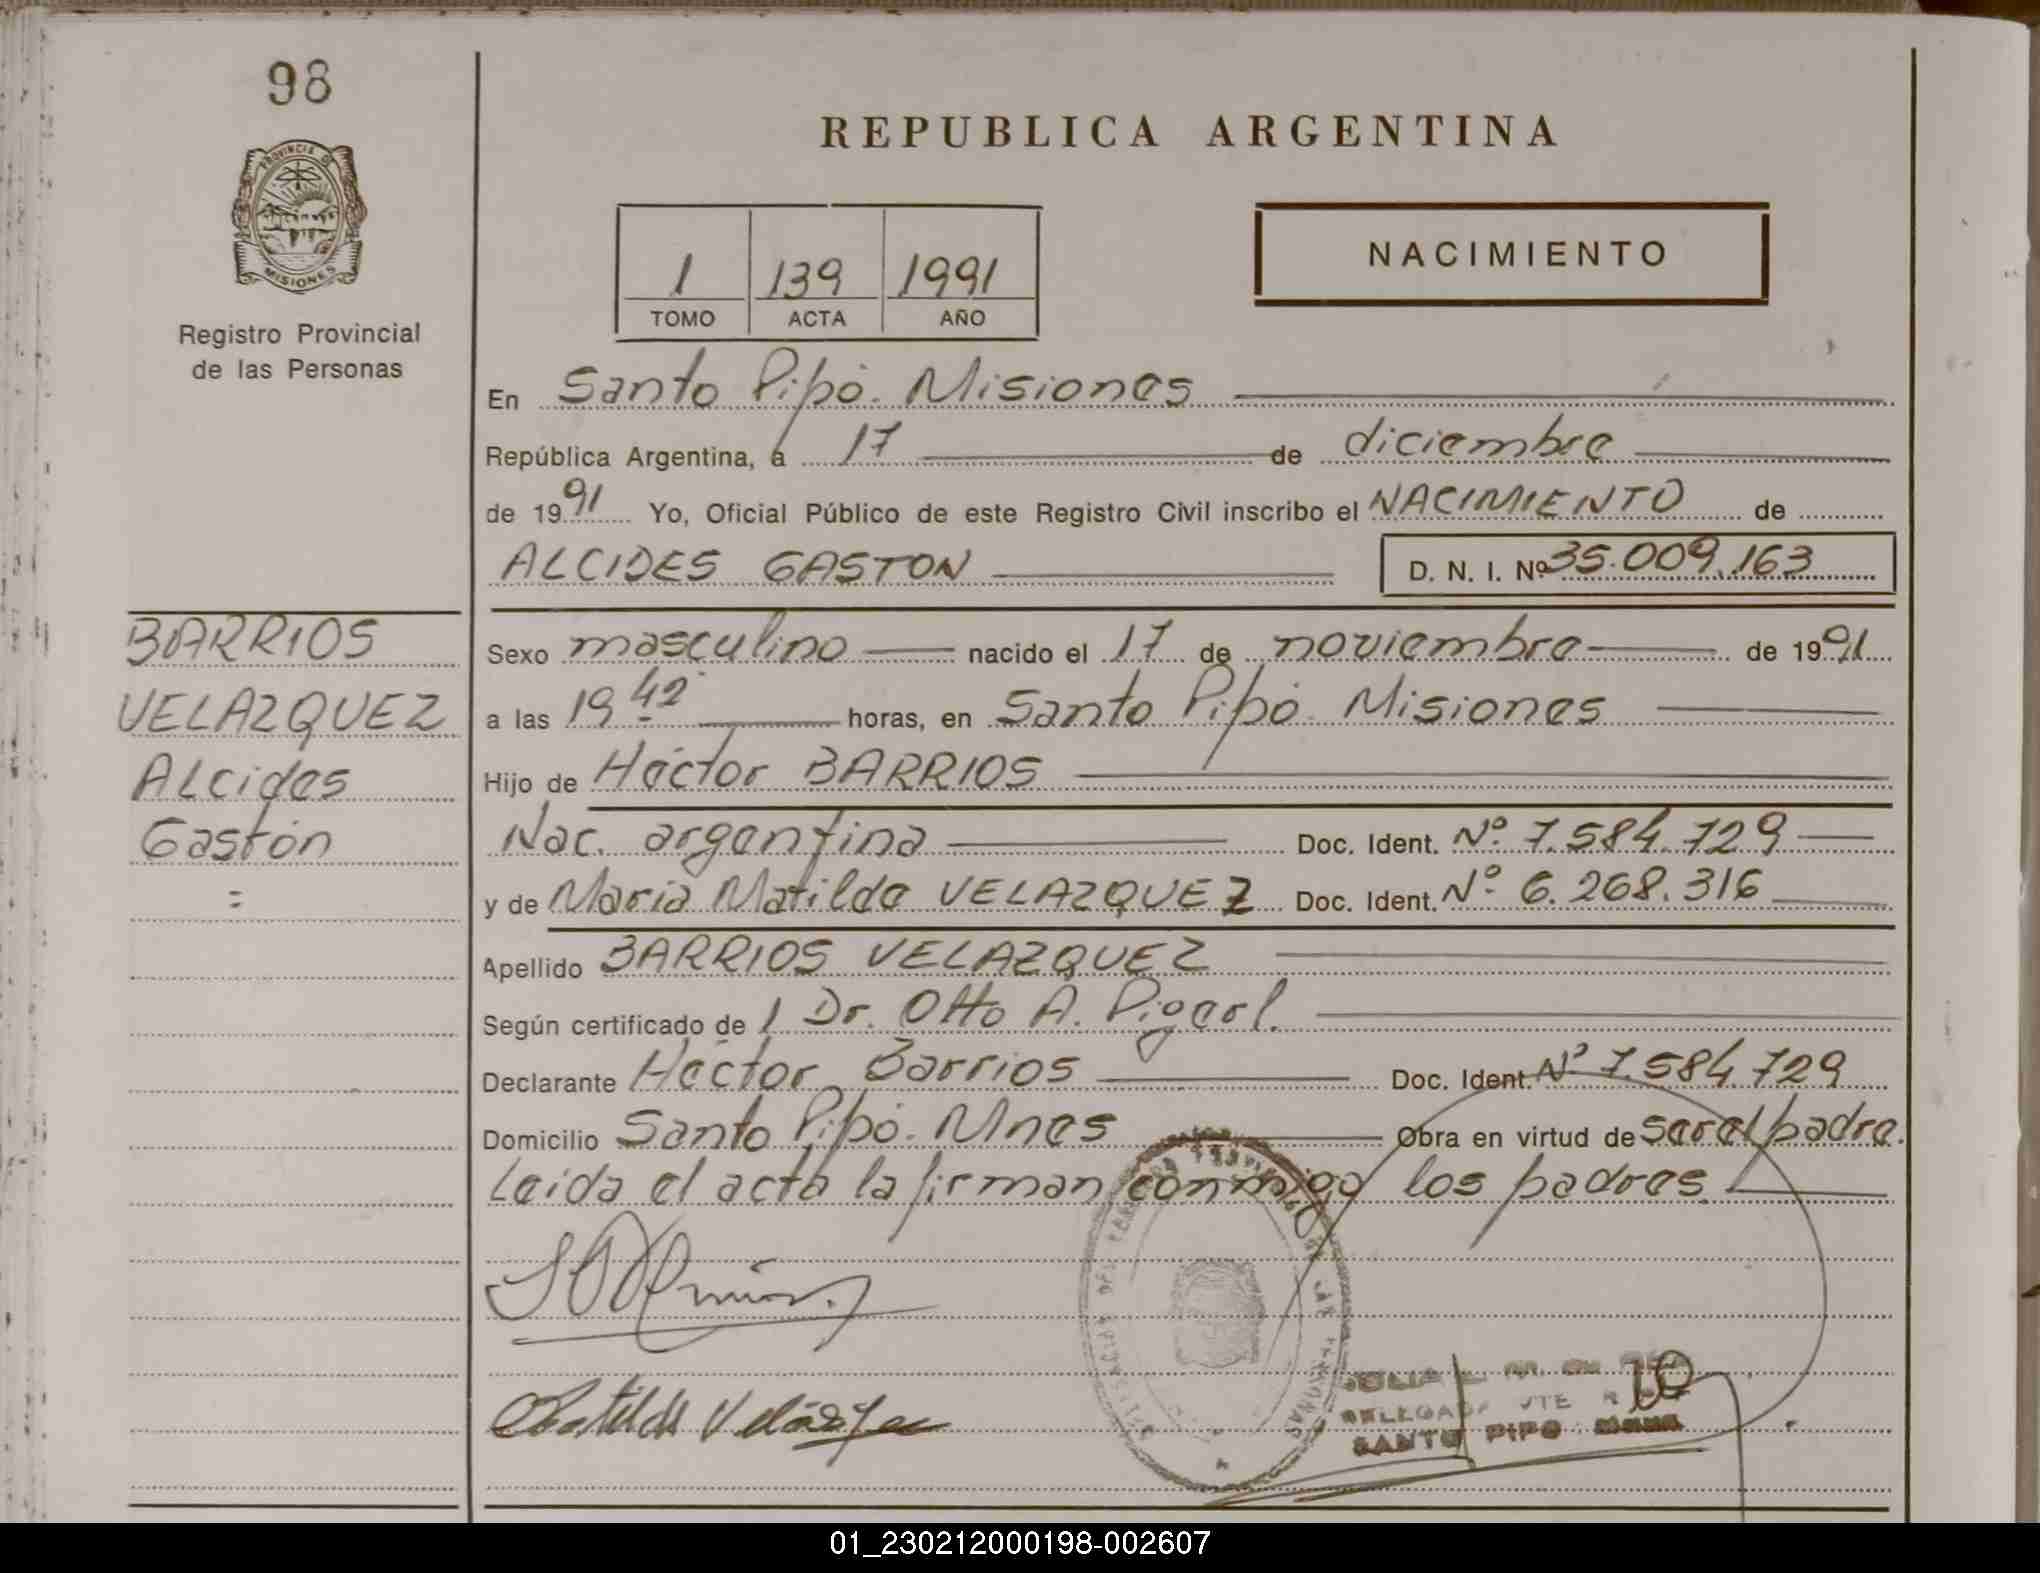 98
PROVINCIA DE
MISIONES
Registro Provincial
de las Personas
BARRIOS
VELAZQUEZ
Alcides
Gastón
=
REPUBLICA ARGENTINA
1 139 1991
TOMO ACTA AÑO
NACIMIENTO
En Santo Pipó. Misiones
República Argentina, a 17 de diciembre
de 1991 Yo, Oficial Público de este Registro Civil inscribo el NACIMIENTO de
ALCIDES GASTON D. N. I. Nº 35.009.163
Sexo masculino nacido el 17 de noviembre de 1991
a las 19 42 horas, en Santo Pipó. Misiones
Hijo de Héctor BARRIOS
Nac. argentina Doc. Ident. Nº 7.584.729
y de María Matilde VELAZQUEZ Doc. Ident. Nº 6.268.316
Apellido BARRIOS VELAZQUEZ
Según certificado de l Dr. Otto A.
Declarante Héctor Barrios Doc. Ident. Nº 7.584.729
Domicilio Santo Pipó. Mnes Obra en virtud de ser el padre.
Leida el acta la firman conmigo los padres
Matilde Velázquez
SANTO PIPO
01_230212000198-002607